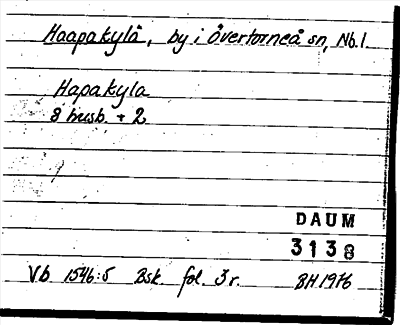 Haapakylä, by i Övertorneå sn, Nb.l.
Hapakyla
8 husb. + 2
DAUM
3138
Vb 1546:5 Bsk. fol. 3r. BH 1976